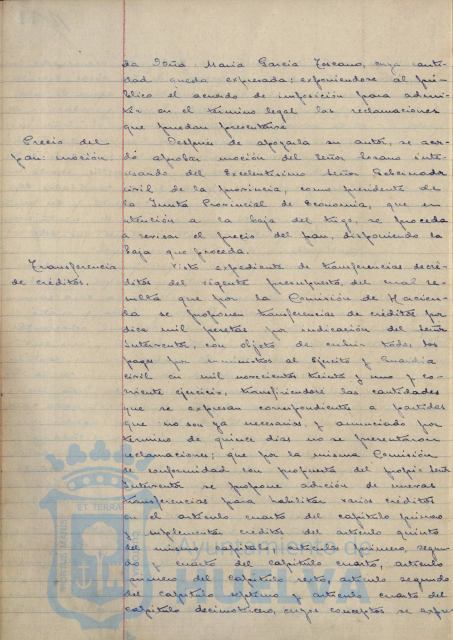 da Doña María García Toscano, cuya canti-
dad queda expresada; exponiéndose al pú-
blico el acuerdo de imposición para admi-
tir en el término legal las reclamaciones
que puedan presentarse
Precio del
pan: moción.
Después de apoyarla su autor, se acor-
dó aprobar moción del Señor Lozano inte-
resando del Excelentísimo Señor Gobernador
civil de la provincia, como presidente de
la Junta Provincial de Economía, que en
atención a la baja del trigo, se proceda
a revisar el precio del pan, disponiendo la
baja que proceda.
Transferencia
de créditos.
Visto expediente de transferencias de cré-
ditos del vigente presupuesto, del cual re-
sulta que por la Comisión de Hacien-
da se proponen transferencias de créditos por
diez mil pesetas por indicación del Señor
Interventor, con objeto de cubrir todos los
pagos por suministros al Ejército y Guardia
civil en mil novecientos treinta y uno y co-
rriente ejercicio, transfiriéndose las cantidades
que se expresan correspondientes a partidas
que no son ya necesarias, y anunciado por
término de quince días no se presentaron
reclamaciones; que por la misma Comisión
de conformidad con propuesta del propio Señor
Interventor se propone adición de nuevas
transferencias para habilitar varios créditos
en el artículo cuarto del capítulo primero
y suplementar créditos del artículo quinto
del mismo capítulo, artículos primero, segun-
do y cuarto del capítulo cuarto, artículo
primero del capítulo sexto, artículo segundo
del capítulo séptimo y artículo cuarto del
capítulo decimotercero, cuyos conceptos se expre
ET TERRA
Ayuntamiento de
HUELVA